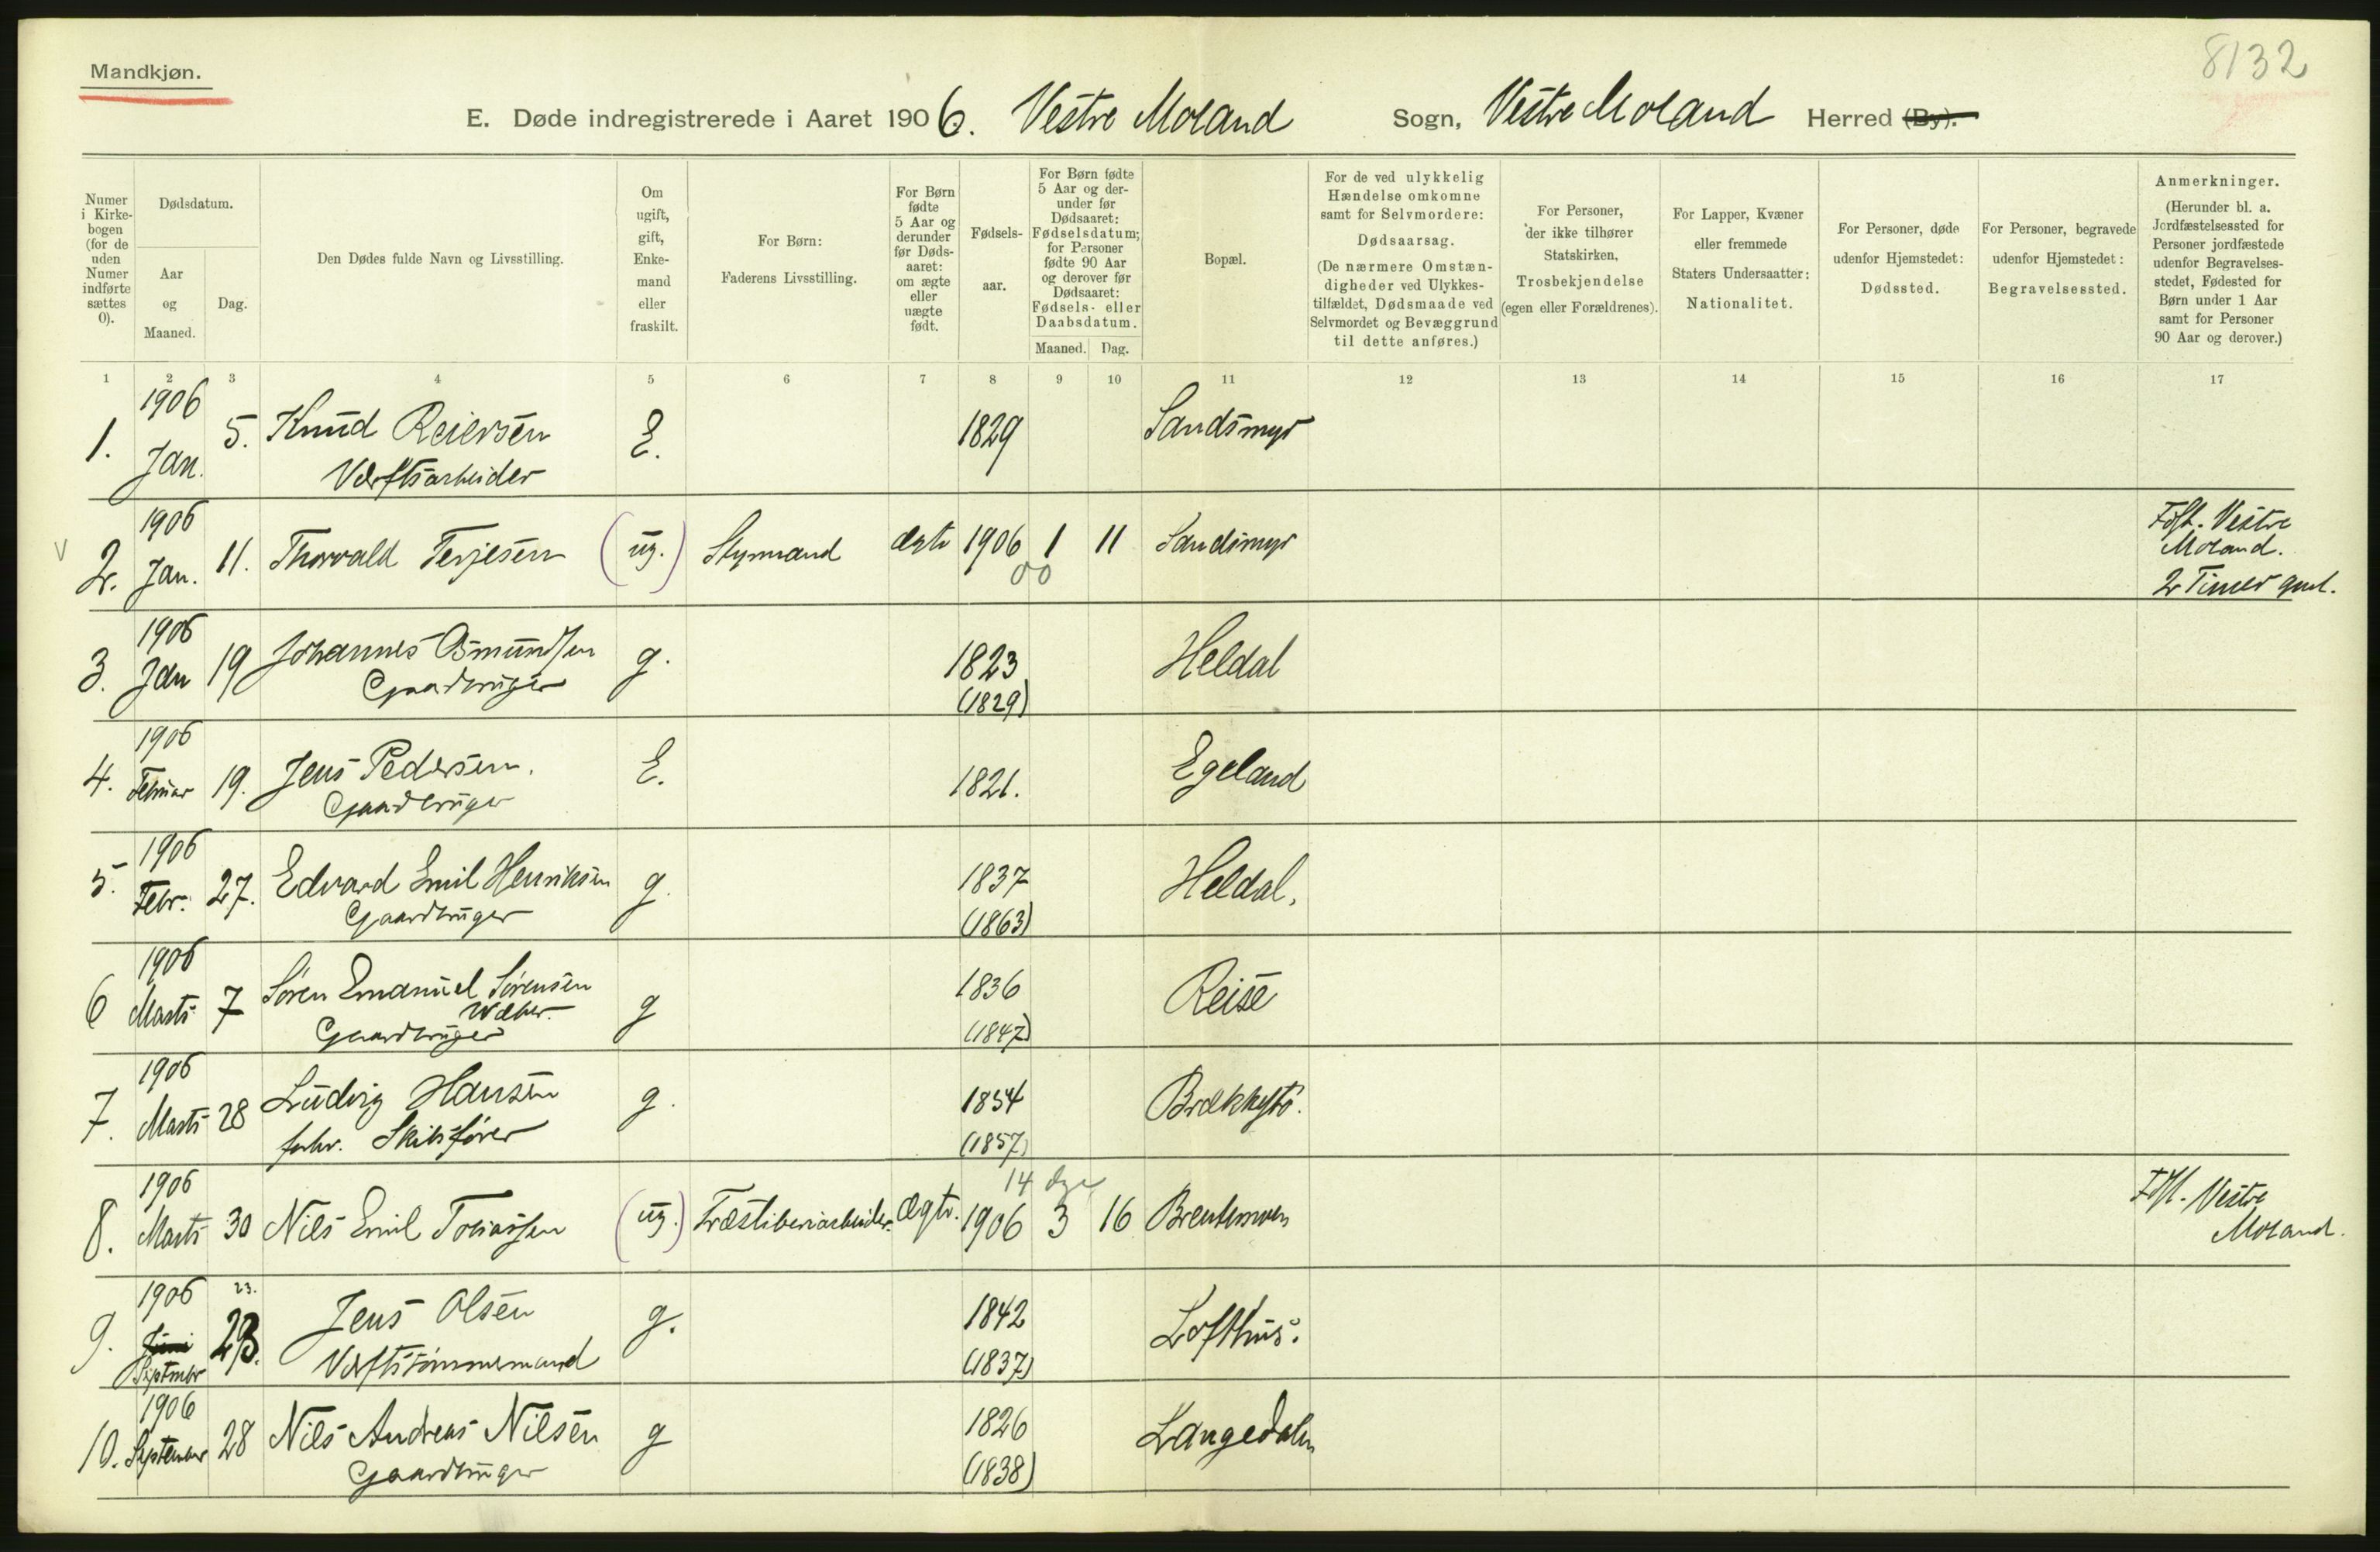 Mandkjøn.
8132
E. Døde indregistrerede i Aaret 1906. Vestre Moland Sogn, Vestre Moland Herred (By).
Numer i Kirkebogen (for de uden Numer indførte sættes 0).
Dødsdatum.
Aar og Maaned.
Dag.
Den Dødes fulde Navn og Livsstilling.
Om ugift, gift, Enkemand eller fraskilt.
For Børn: Faderens Livsstilling.
For Børn fødte 5 Aar og derunder før Dødsaaret: om ægte eller uægte født.
Fødselsaar.
For Børn fødte 5 Aar og derunder før Dødsaaret: Fødselsdatum; for Personer fødte 90 Aar og derover før Dødsaaret: Fødsels- eller Daabsdatum.
Maaned. Dag.
Bopæl.
For de ved ulykkelig Hændelse omkomne samt for Selvmordere: Dødsaarsag. (De nærmere Omstændigheder ved Ulykkestilfældet, Dødsmaade ved Selvmordet og Bevæggrund til dette anføres.)
For Personer, der ikke tilhører Statskirken, Trosbekjendelse (egen eller Forældrenes).
For Lapper, Kvæner eller fremmede Staters Undersaatter: Nationalitet.
For Personer, døde udenfor Hjemstedet: Dødssted.
For Personer, begravede udenfor Hjemstedet: Begravelsessted.
Anmerkninger. (Herunder bl. a. Jordfæstelsessted for Personer jordfæstede udenfor Begravelsesstedet, Fødested for Børn under 1 Aar samt for Personer 90 Aar og derover.)
1 2 3 4 5 6 7 8 9 10 11 12 13 14 15 16 17
1. 1906 Jan. 5. Knud Reiersen E. 1829 Sandsmyr
Værftsarbeider
2. 1906 Jan. 11. Thorvald Terjesen (ug.) Styrmand ægte 1906 1 11 Sandsmyr Fdst. Vestre
Moland.
00 2 Timer gml.
3. 1906 Jan 19 Johannes Osmundsen g. 1823 Heldal
Gaardbruger (1829)
4. 1906 Februar 19. Jens Pedersen. E. 1821. Egeland
Gaardbruger
5. 1906 Febr. 27. Edvard Emil Henriksen g. 1837 Heldal.
Gaardbruger (1863)
6 1906 Marts 7 Søren Emanuel Sørensen g 1836 Reise
Gaardbruger (1847)
7. 1906 Marts 28 Ludvig Hansen g. 1854 Brækkestø.
forhv. Skibsfører (1857)
14 dge
8. 1906 Marts 30 Nils Emil Tobiassen (ug.) Træsliberiarbeider. Ægte. 1906 3 16 Brentemoen Fdst. Vestre
Moland.
9. 1906 Juni September 23. 23. Jens Olsen g. 1842 Lofthus.
Værftstømmermand (1837)
10. 1906 September 28 Nils Andreas Nilsen g 1826 Langedalen
Gaardbruger (1838)